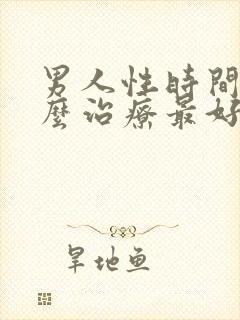 男人性時間
麼治療最好
旱地鱼